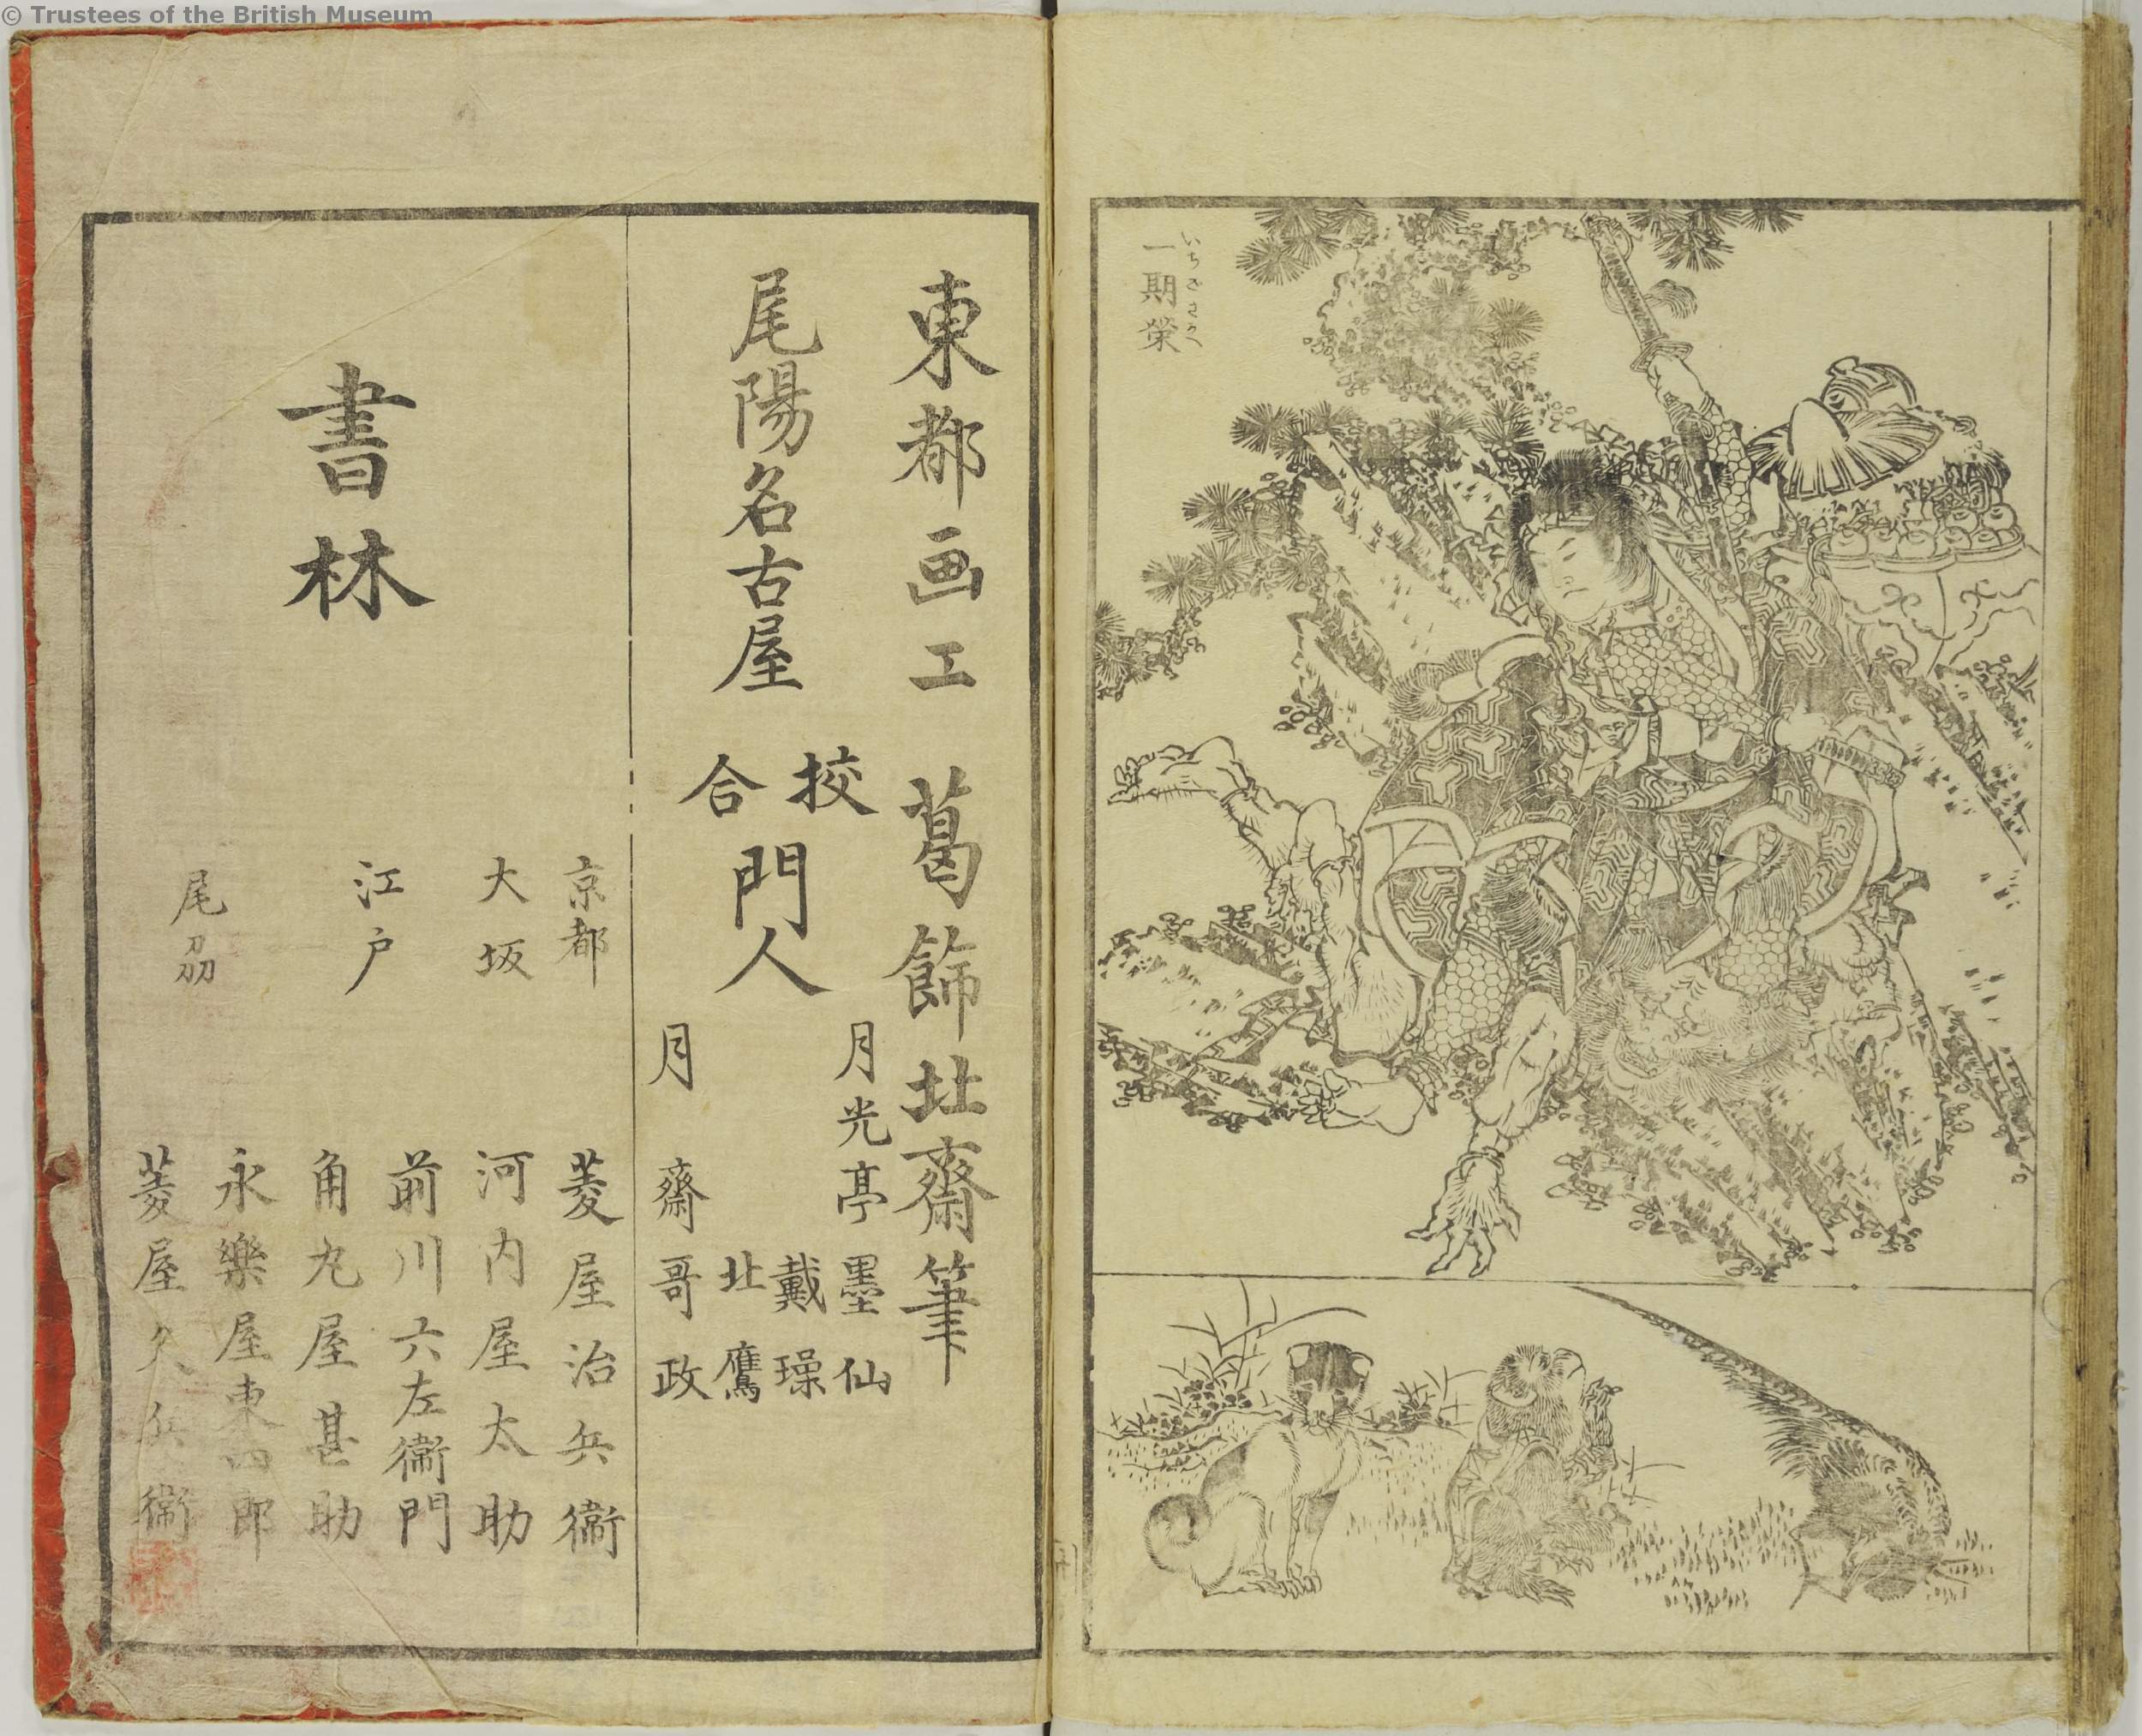 © Trustees of the British Museum
一期榮
東都画工 葛飾北齋筆
尾陽名古屋
校合
門人
月光亭墨仙
戴璪
北鷹
月齋哥政
書林
京都 菱屋治兵衞
大坂 河内屋太助
江戸
前川六左衞門
角丸屋甚助
尾刕
永樂屋東四郎
菱屋久兵衞